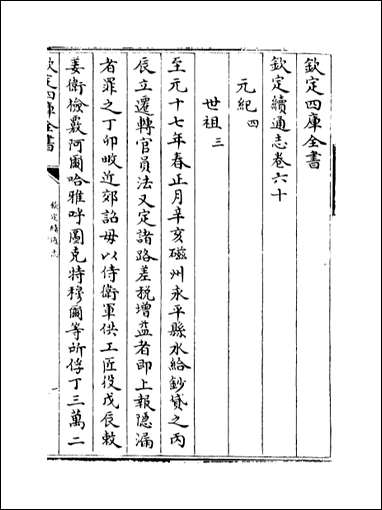 欽定四庫全書
欽定續通志卷六十
元紀四
世祖三
至元十七年春正月辛亥磁州永平縣水給鈔貸之丙
辰立遷轉官員法又定諸路差税增益者即上報隠漏
者罪之丁卯畋近郊詔毋以侍衛軍供工匠役戊辰敕
姜衛儉覈阿爾哈雅呼圖克特穆爾等所俘丁三萬二
欽定四庫全書
欽定續通志
一